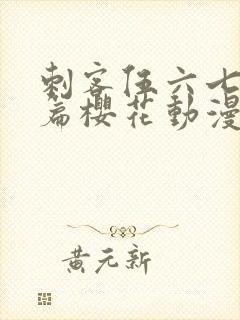 刺客伍六七
篇櫻花動漫
黃元新